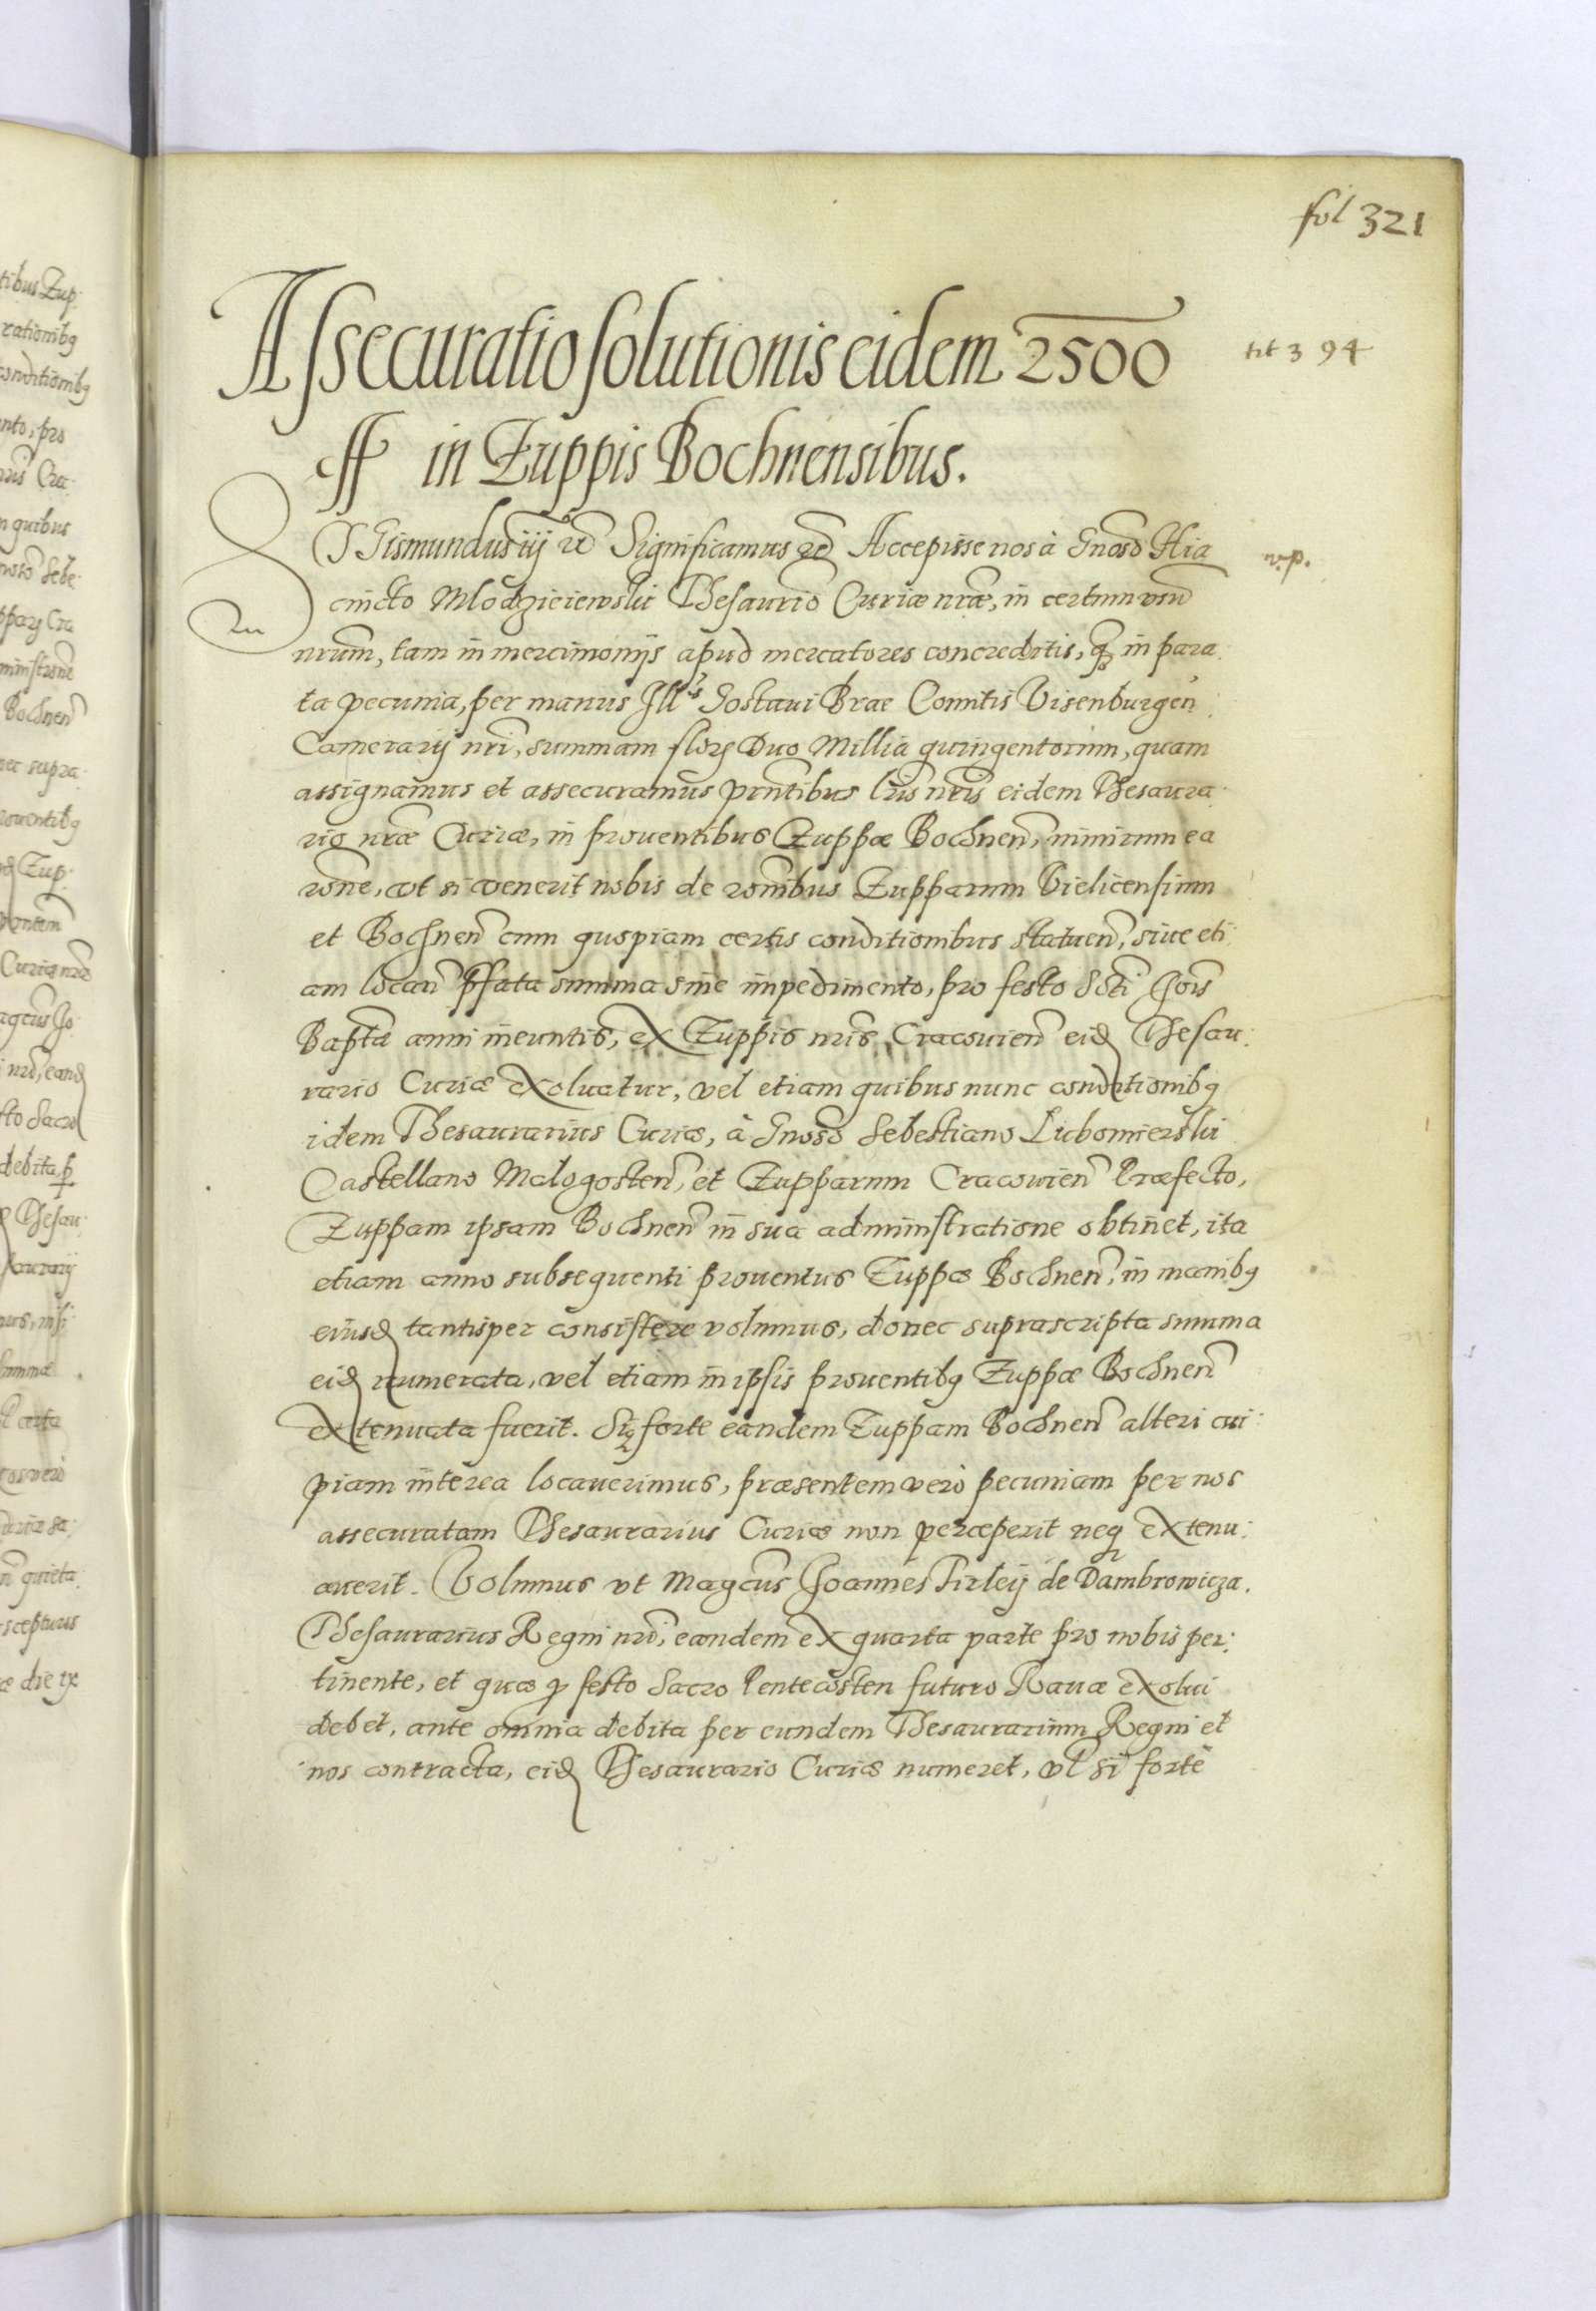 fol 321
Assecuratio solutionis eidem 2500
ff in Zuppis Bochnensibus.
tit 3 94
SIGismundus iij etc Significamus etc Accepisse nos à Gnoso Hia
n.p.
cincto Mlodzieiewski Thesaurio Curiæ nræ, in certum usu
nrum, tam in mercimonijs apud mercatores concreditis, q in para:
ta pecunia, per manus Ill's Gostaui Brae Comitis Visenburgen
Camerarij nri, summam flor Duo Millia quingentorum, quam
assignamus et assecuramus pntibus lris nris eidem Thesaura:
rio nræ Curiæ, in prouentibus Zuppæ Bochnen, nimirum ea
rone, vt si venerit nobis de ronibus Zupparum Vielicensium
et Bochnen cum quopiam certis conditionibus statuen, siue eti:
am locan pfata summa sine impedimento, pro festo Scti Jois
Bapta anni ineuntis, ex Zuppis nris Cracouien eid Thesau:
rario Curiæ exoluatur, vel etiam quibus nunc conditionibq
idem Thesaurarius Curiæ, à Gnoso Sebestiano Lubomierski
Castellano Malogosten, et Zupparum Cracouien Præfecto,
Zuppam ipsam Bochnen in sua administratione obtinet, ita
etiam anno subsequenti prouentus Zuppæ Bochnen, in manibq
eiusd tantisper consistere volumus, donec suprascripta summa
eid numerata, vel etiam in ipsis prouentibq Zuppæ Bochnen
extenuata fuerit. Siq forte eandem Zuppam Bochnen alteri cui:
piam interea locauerimus, præsentem verò pecuniam per nos
assecuratam Thesaurarius Curiæ non perceperit neq extenu:
auerit. Volumus vt Magcus Joannes Firleij de Dambrowicza.
Thesaurarius Regni nri, eandem ex quarta parte pro nobis per:
tinente, et quæ p festo Sacro Pentecosten futuro Rauæ exolui
debet, ante omnia debita per eundem Thesaurarium Regni et
nos contracta, eid Thesaurario Curiæ numeret, vl si forte